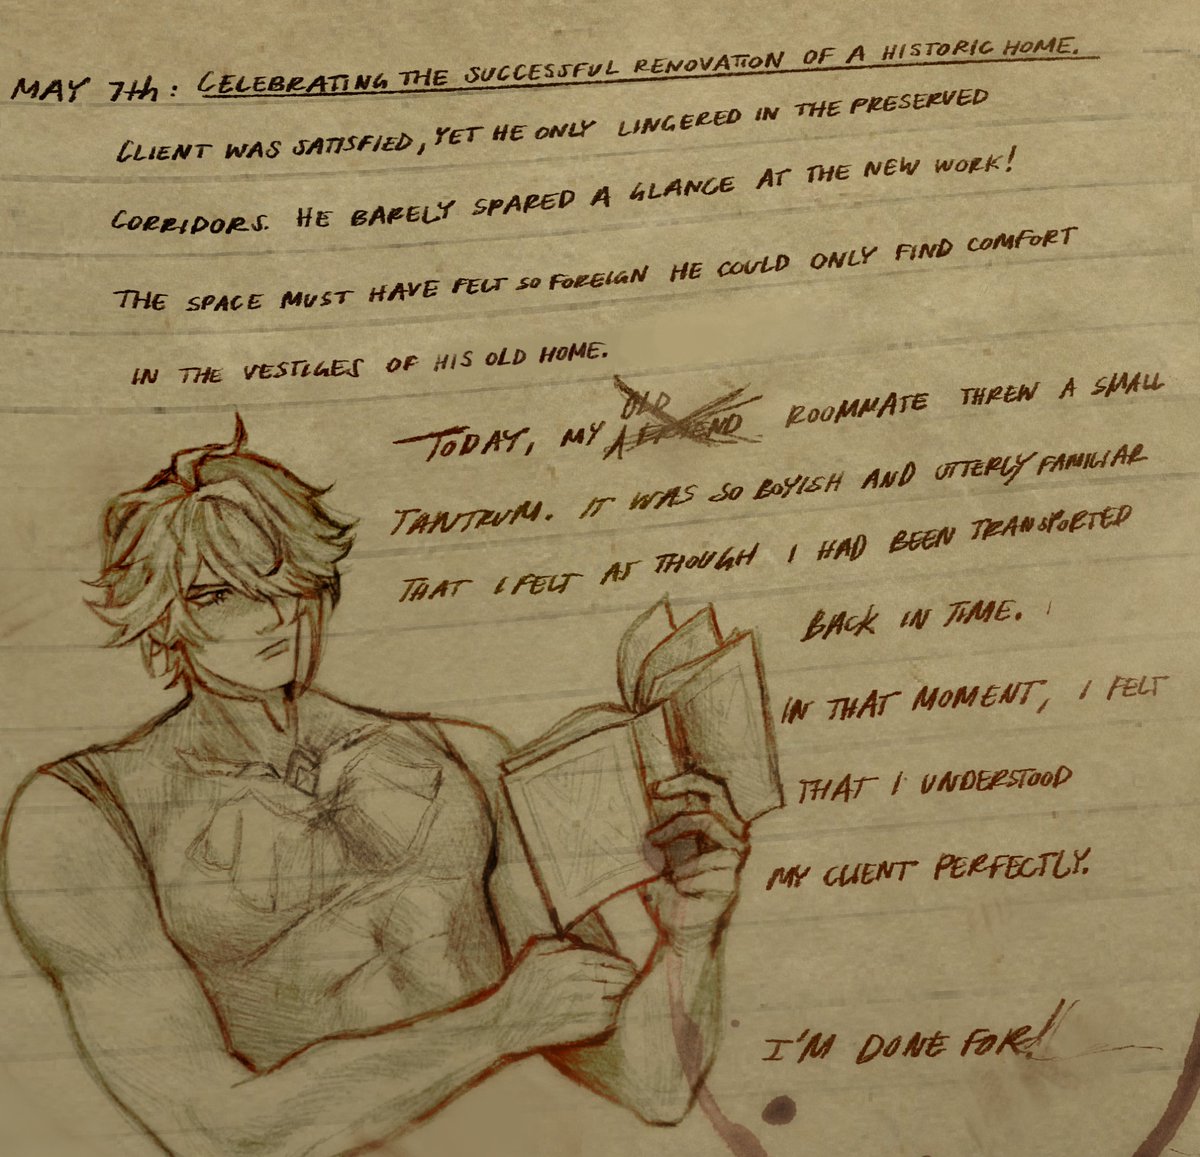 MAY 7th: CELEBRATING THE SUCCESSFUL RENOVATION OF A HISTORIC HOME.
CLIENT WAS SATISFIED, YET HE ONLY LINGERED IN THE PRESERVED
CORRIDORS. HE BARELY SPARED A GLANCE AT THE NEW WORK!
THE SPACE MUST HAVE FELT SO FOREIGN HE COULD ONLY FIND COMFORT
IN THE VESTIGES OF HIS OLD HOME.
OLD
TODAY, MY A FRIEND ROOMMATE THREW A SMALL
TANTRUM. IT WAS SO BOYISH AND UTTERLY FAMILIAR
THAT I FELT AS THOUGH I HAD BEEN TRANSPORTED
BACK IN TIME.
IN THAT MOMENT, I FELT
THAT I UNDERSTOOD
MY CLIENT PERFECTLY.
I'M DONE FOR!